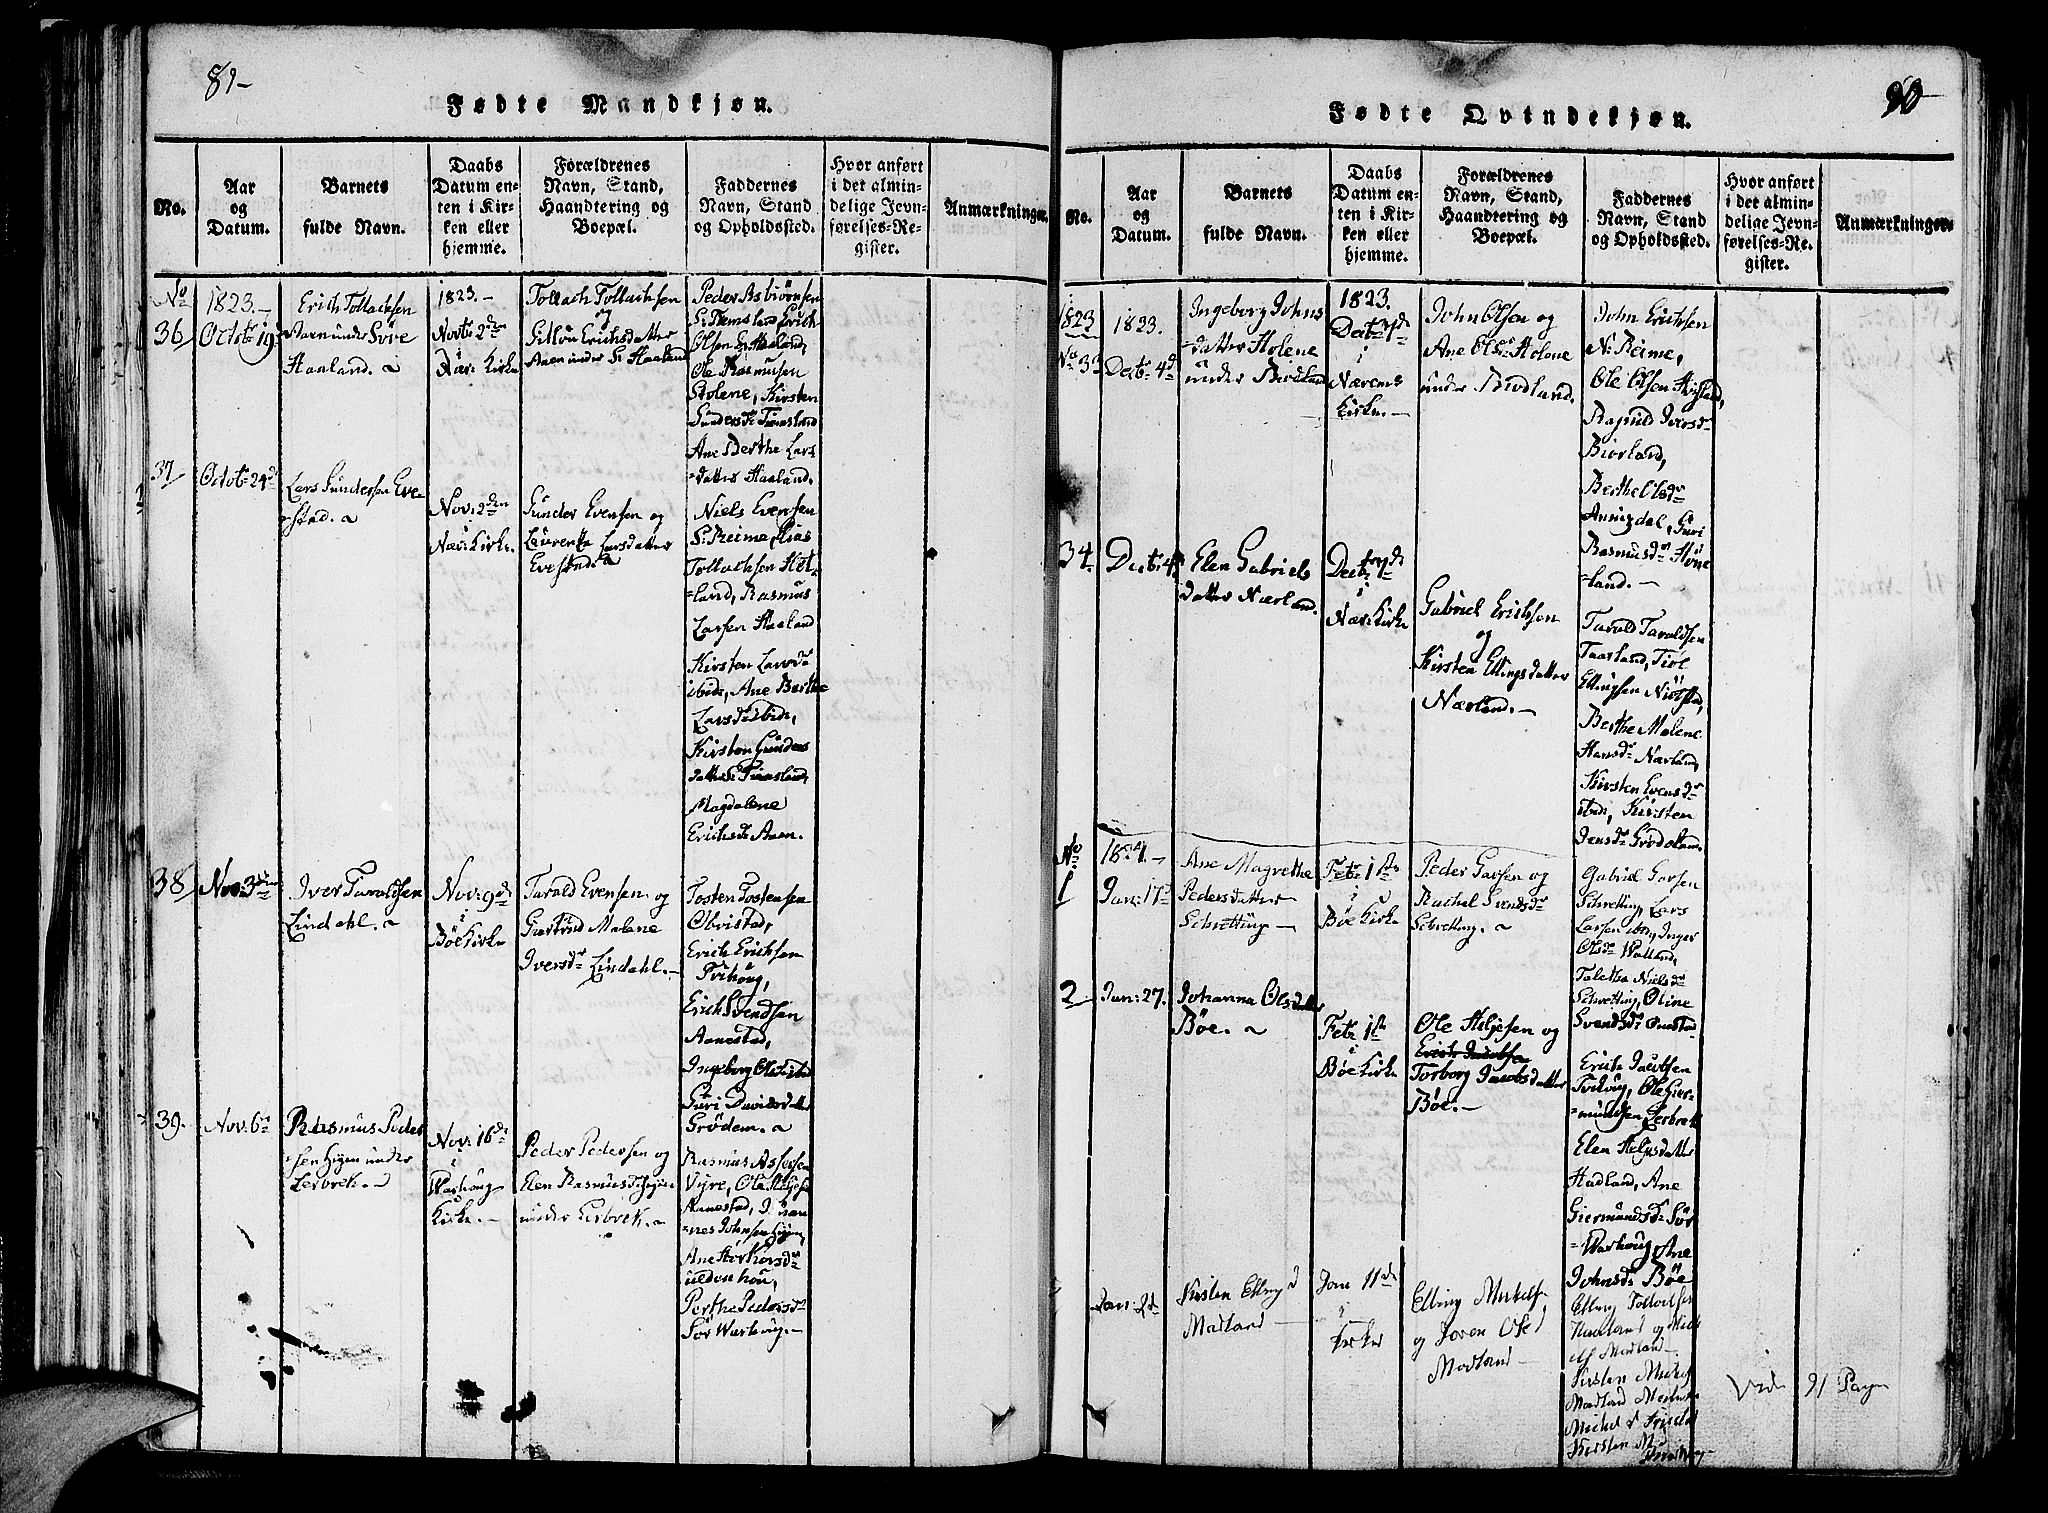 89
Fødte Mandkjøn.
No.
Aar
og
Datum.
Barnets
fulde Navn.
Daabs
Datum en-
ten i Kir-
ken eller
hjemme.
Forældrenes
Navn, Stand,
Haandtering og
Boepæl.
Faddernes
Navn, Stand
og Opholdssted.
Hvor anført
i det almin-
delige Jevn-
førelses-Re-
gister.
Anmærkninger.
No
36
1823.
Octbr 19de
Erich Tollachsen
Aaen under Søre
Haaland.
1823.
Novbr 2den
i
Nær: Kirke
Tollach Tollachsen
og
Erichsdatter
Aaen under S: Haaland
Peder Asbiörnsen
S: Timsland, Erich
Olsen S: Haaland,
Ole Rasmusen
Stolene, Kirsten
Gundersdr Timsland
Ane Berthe Lars
datter Haaland.
37
Octob: 24de
Lars Gundersen Eve-
stad.
Nov: 2den
i
Nær: Kirke.
Gunder Evensen og
Laurentse Larsdatter
Evestad.
Niels Evensen
S: Reime, Elias
Tollachsen Høt-
land, Rasmus
Larsen Haaland
Kirsten Larsdr
ibid, Ane Berthe
Larsdr ibid,
Kirsten Gunders
datter Timsland,
Magdalene
Erichsdr Aaen.
38
Nov: 3die
Iver Taraldsen
Lindahl.
Nov: 9de
i
Böe Kirke
Tarald Evensen og
Giertrud Malene
Iversdr Lindahl.
Tosten Tostensen
Obrestad,
Erich Erichsen
Tvihoug,
Erich Svendsen
Aanestad,
Ingeborg Olsdr ibid
Guri Davidsdatter
Grödem.
39.
Nov: 6te
Rasmus Peder
sen Higen under
Lerbrek.
Nov: 16de
i
Warhoug
Kirke.
Peder Pedersen og
Elen Rasmusdr Higen
under Lerbrek.
Rasmus Assersen
Vigre, Ole Heljesen
Aanestad,
nes Johnsen Higen,
Ane
Berthe Pedersdr
Sör Warhoug.
90
Fødte Qvindekjøn.
No.
Aar
og
Datum.
Barnets
fulde Navn.
Daabs
Datum en-
ten i Kir-
ken eller
hjemme.
Forældrenes
Navn, Stand,
Haandtering og
Boepæl.
Faddernes
Navn, Stand
og Opholdssted.
Hvor anført
i det almin-
delige Jevn-
førelses-Re-
gister.
Anmærkninger.
1823
No 33
1823.
Decbr 4de
Ingeborg Johns
datter Holene
under Birkland
1823.
Decbr 7de
i
Nærems
Kirke.
John Olsen og
Ane Olsdr Holene
under Birkland.
John Erichsen
N: Reime,
Ole Olsen Hogstad,
Ragnild Iversdr
Biorland,
Berthe Olsdr
Aningdal, Guri
Rasmusdr Höne
land.
34
Decbr: 4de
Elen Gabriels
datter Nærland.
Decbr 7de
i
Nær: Kirke
Gabriel Erichsen
og
Kirsten Ellingsdatter
Nærland.
Tarald Taraldsen
Taarland, Tiöl
Ellingsen Niölstad,
Berthe Malene
Hansdr Nærland,
Kirsten Evensdr
ibid, Kirsten
Jensdr Grödeland.
No
1
1824.
Jan: 17de
Ane Magrethe
Pedersdatter
Schretting
Febr 1ste
i
Böe Kirke
Peder Larsen og
Rachel Svendsdr
Schretting.
Gabriel Larsen
Schretting, Lars
Larsen ibid, Inger
Olsdr Watland,
Taletha Nielsdr
Schretting, Oline
Svendsdr
2
Jan: 27.
Johanna Olsdatter
Böe.
Febr 1ste
i
Böe Kirke
Ole Heljesen og
Torborg Jacobsdatter
Böe.
Erich Jacobsen
Tvihoug, Ole Gier-
mundsen Lerbrek
Elen Heljesdatter
Hadland, Ane
Giermundsdr Sör
Warhoug, Ane
Johnsdr Böe
Jan: 2d
Kirsten Elling d
Madland
Jan 11de
i
Kirken
Elling Mikels
og Joren Ols d
Madland
Elling Tollachsen
Haaland og
Madland
Kirsten Mickels
Madland
Kirsten
Vide 91 Pagin